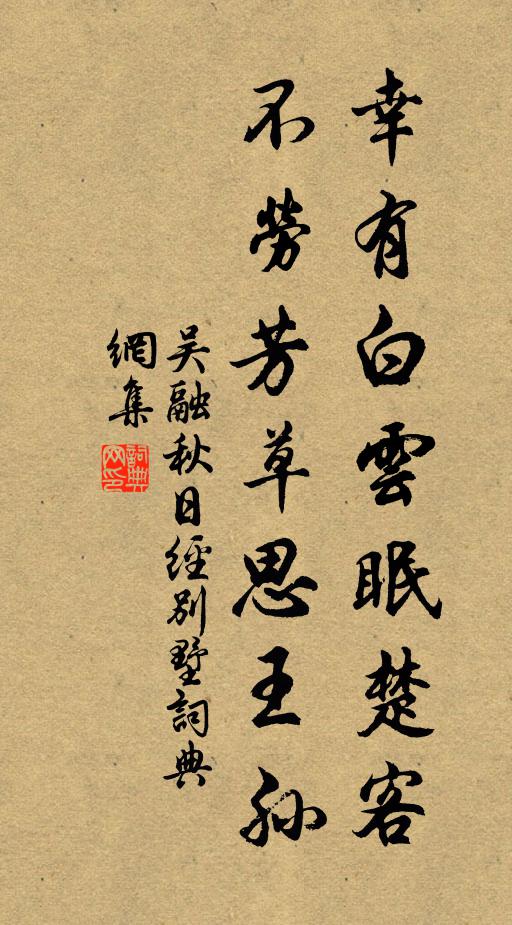 幸有白雲眠楚客
不勞芳草思王孫
吴融秋日經別墅詞典
網集
詞典
网印